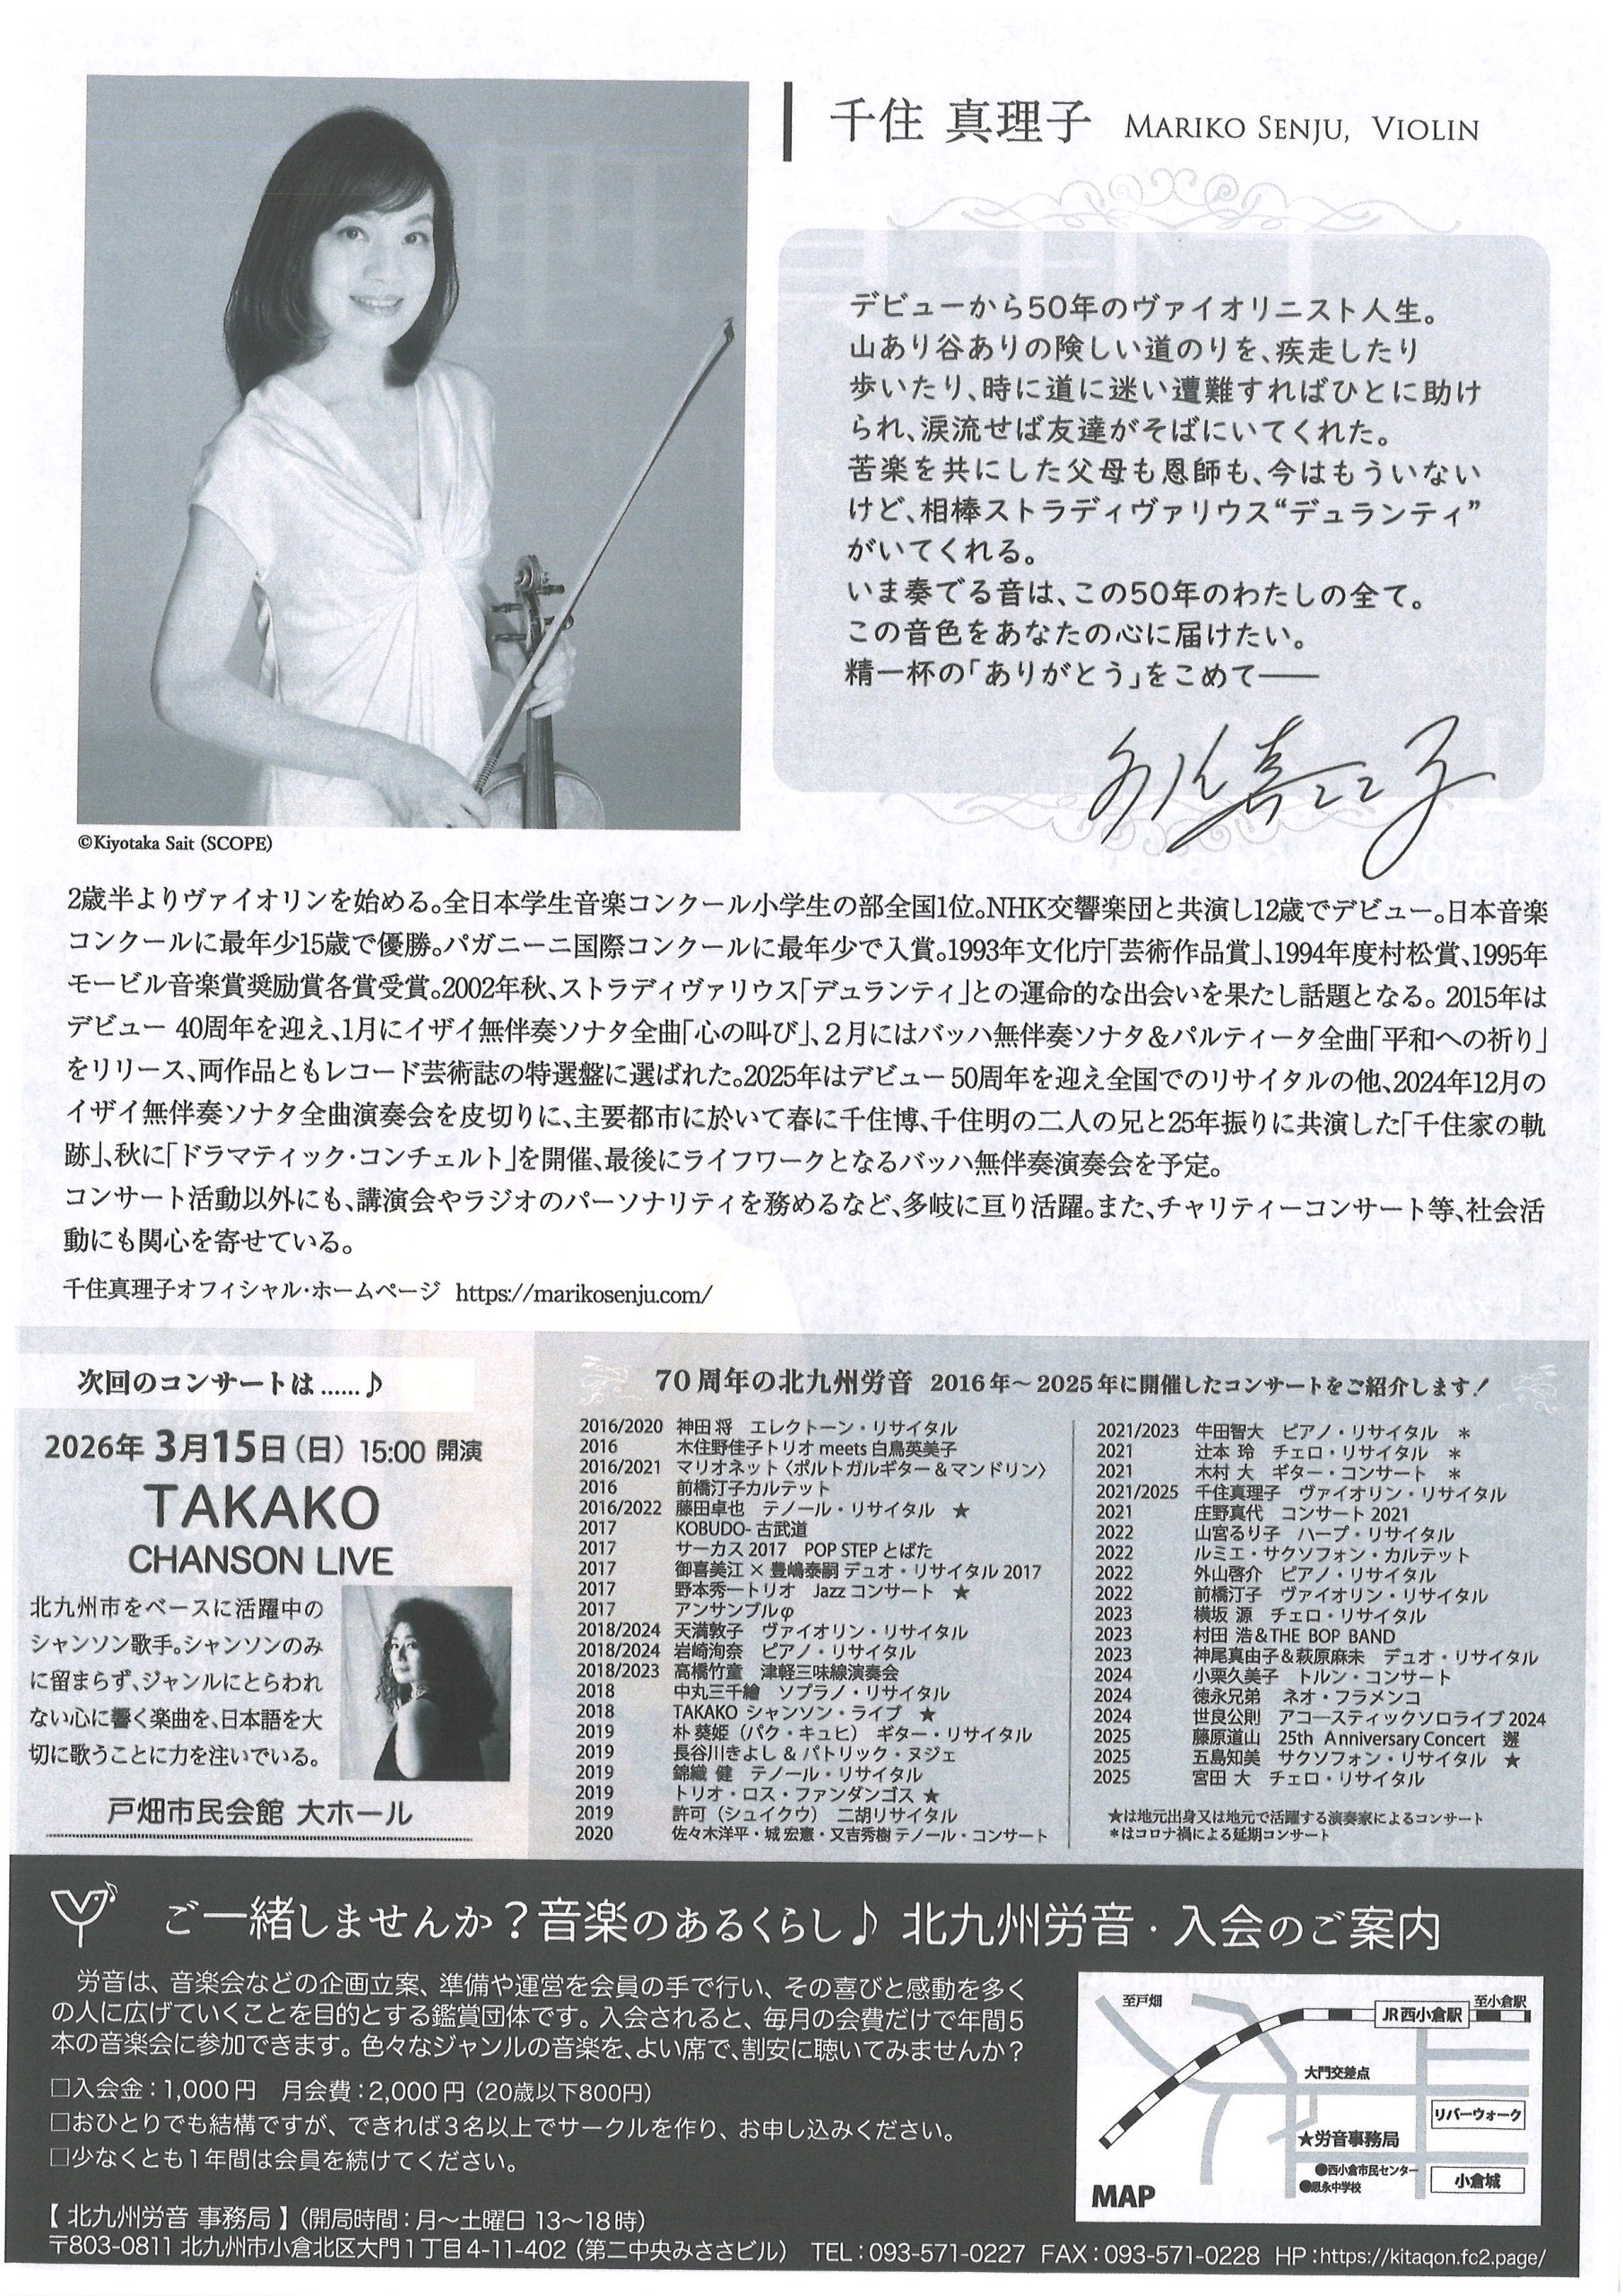 千住 真理子 MARIKO SENJU, VIOLIN
デビューから50年のヴァイオリニスト人生。
山あり谷ありの険しい道のりを、疾走したり
歩いたり、時に道に迷い遭難すればひとに助け
られ、涙流せば友達がそばにいてくれた。
苦楽を共にした父母も恩師も、今はもういない
けど、相棒ストラディヴァリウス“デュランティ”
がいてくれる。
いま奏でる音は、この50年のわたしの全て。
この音色をあなたの心に届けたい。
精一杯の「ありがとう」をこめて――
千住真理子
©Kiyotaka Sait (SCOPE)
2歳半よりヴァイオリンを始める。全日本学生音楽コンクール小学生の部全国1位。NHK交響楽団と共演し12歳でデビュー。日本音楽
コンクールに最年少15歳で優勝。パガニーニ国際コンクールに最年少で入賞。1993年文化庁「芸術作品賞」、1994年度村松賞、1995年
モービル音楽賞奨励賞各賞受賞。2002年秋、ストラディヴァリウス「デュランティ」との運命的な出会いを果たし話題となる。2015年は
デビュー 40周年を迎え、1月にイザイ無伴奏ソナタ全曲「心の叫び」、2月にはバッハ無伴奏ソナタ&パルティータ全曲「平和への祈り」
をリリース、両作品ともレコード芸術誌の特選盤に選ばれた。2025年はデビュー 50周年を迎え全国でのリサイタルの他、2024年12月の
イザイ無伴奏ソナタ全曲演奏会を皮切りに、主要都市に於いて春に千住博、千住明の二人の兄と25年振りに共演した「千住家の軌
跡」、秋に「ドラマティック・コンチェルト」を開催、最後にライフワークとなるバッハ無伴奏演奏会を予定。
コンサート活動以外にも、講演会やラジオのパーソナリティを務めるなど、多岐に亘り活躍。また、チャリティーコンサート等、社会活
動にも関心を寄せている。
千住真理子オフィシャル・ホームページ https://marikosenju.com/
次回のコンサートは……♪
2026年 3月15日(日) 15:00 開演
TAKAKO
CHANSON LIVE
北九州市をベースに活躍中の
シャンソン歌手。シャンソンのみ
に留まらず、ジャンルにとらわれ
ない心に響く楽曲を、日本語を大
切に歌うことに力を注いでいる。
戸畑市民会館 大ホール
70周年の北九州労音 2016年～2025年に開催したコンサートをご紹介します!
2016/2020 神田 将 エレクトーン・リサイタル
2016 木住野佳子トリオ meets 白鳥英美子
2016/2021 マリオネット〈ポルトガルギター&マンドリン〉
2016 前橋汀子カルテット
2016/2022 藤田卓也 テノール・リサイタル ★
2017 KOBUDO- 古武道
2017 サーカス 2017 POP STEP とばた
2017 御喜美江 × 豊嶋泰嗣 デュオ・リサイタル 2017
2017 野本秀一トリオ Jazz コンサート ★
2017 アンサンブルφ
2018/2024 天満敦子 ヴァイオリン・リサイタル
2018/2024 岩崎洵奈 ピアノ・リサイタル
2018/2023 高橋竹童 津軽三味線演奏会
2018 中丸三千繪 ソプラノ・リサイタル
2018 TAKAKO シャンソン・ライブ ★
2019 朴 葵姫(パク・キュヒ) ギター・リサイタル
2019 長谷川きよし & パトリック・ヌジェ
2019 錦織 健 テノール・リサイタル
2019 トリオ・ロス・ファンダンゴス ★
2019 許可(シュイクウ) 二胡リサイタル
2020 佐々木洋平・城 宏憲・又吉秀樹 テノール・コンサート
2021/2023 牛田智大 ピアノ・リサイタル *
2021 辻本 玲 チェロ・リサイタル *
2021 木村 大 ギター・コンサート *
2021/2025 千住真理子 ヴァイオリン・リサイタル
2021 庄野真代 コンサート 2021
2022 山宮るり子 ハープ・リサイタル
2022 ルミエ・サクソフォン・カルテット
2022 外山啓介 ピアノ・リサイタル
2022 前橋汀子 ヴァイオリン・リサイタル
2023 横坂 源 チェロ・リサイタル
2023 村田 浩&THE BOP BAND
2023 神尾真由子&萩原麻未 デュオ・リサイタル
2024 小栗久美子 トルン・コンサート
2024 徳永兄弟 ネオ・フラメンコ
2024 世良公則 アコースティックソロライブ 2024
2025 藤原道山 25th Anniversary Concert 邂
2025 五島知美 サクソフォン・リサイタル ★
2025 宮田 大 チェロ・リサイタル
★は地元出身又は地元で活躍する演奏家によるコンサート
*はコロナ禍による延期コンサート
ご一緒しませんか?音楽のあるくらし♪ 北九州労音・入会のご案内
労音は、音楽会などの企画立案、準備や運営を会員の手で行い、その喜びと感動を多く
の人に広げていくことを目的とする鑑賞団体です。入会されると、毎月の会費だけで年間5
本の音楽会に参加できます。色々なジャンルの音楽を、よい席で、割安に聴いてみませんか?
□入会金:1,000円 月会費:2,000円(20歳以下800円)
□おひとりでも結構ですが、できれば3名以上でサークルを作り、お申し込みください。
□少なくとも1年間は会員を続けてください。
【 北九州労音 事務局 】(開局時間:月～土曜日 13～18時)
〒803-0811 北九州市小倉北区大門1丁目4-11-402(第二中央みささビル) TEL:093-571-0227 FAX:093-571-0228 HP:https://kitaqon.fc2.page/
至戸畑
JR西小倉駅
至小倉駅
大門交差点
リバーウォーク
★労音事務局
●西小倉市民センター
●思永中学校
小倉城
MAP